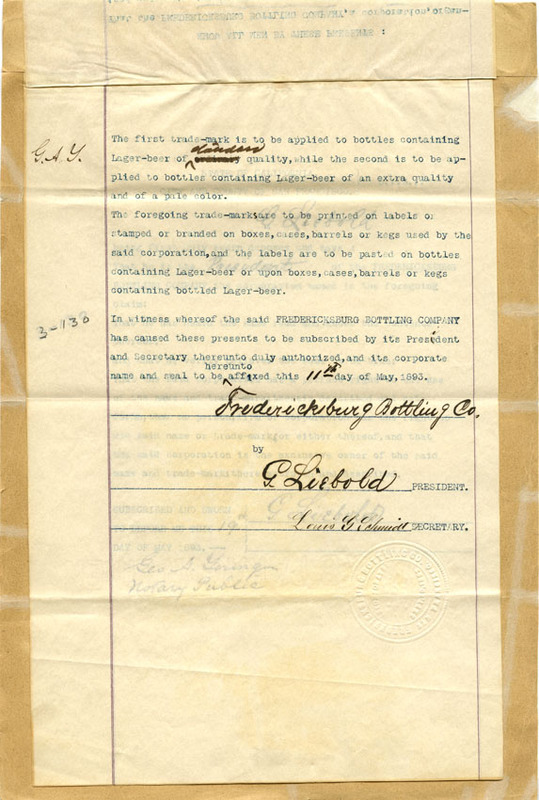 The first trade-mark is to be applied to bottles containing
G.A.Y.
standard
Lager-beer of quality,while the second is to be ap-
plied to bottles containing Lager-beer of an extra quality
and of a pale color.
The foregoing trade-marks are to be printed on labels or
stamped or branded on boxes,cases,barrels or kegs used by the
said corporation,and the labels are to be pasted on bottles
containing Lager-beer or upon boxes,cases,barrels or kegs
containing bottled Lager-beer.
3-138
In witness whereof the said FREDERICKSBURG BOTTLING COMPANY
has caused these presents to be subscribed by its President
and Secretary thereunto duly authorized,and its corporate
hereunto
name and seal to be affixed this 11th day of May, 1893.
Fredericksburg Bottling Co.
by
G. Liebold PRESIDENT.
Louis G Schmidt SECRETARY.
SUBSCRIBED AND SWORN
G Liebold
19
DAY OF MAY 1893.
Geo A.
Notary Public